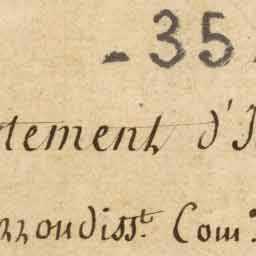 - 35
tement d'I
rrondisst. Com.